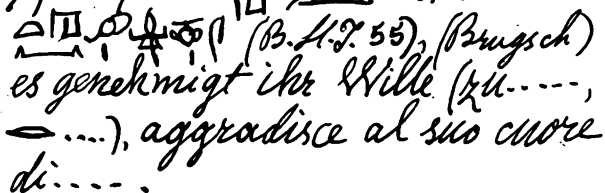 (B.H.J. 55), (Brugsch)
es genehmigt ihr Wille (zu.....,
....), aggradisce al suo cuore
di.....